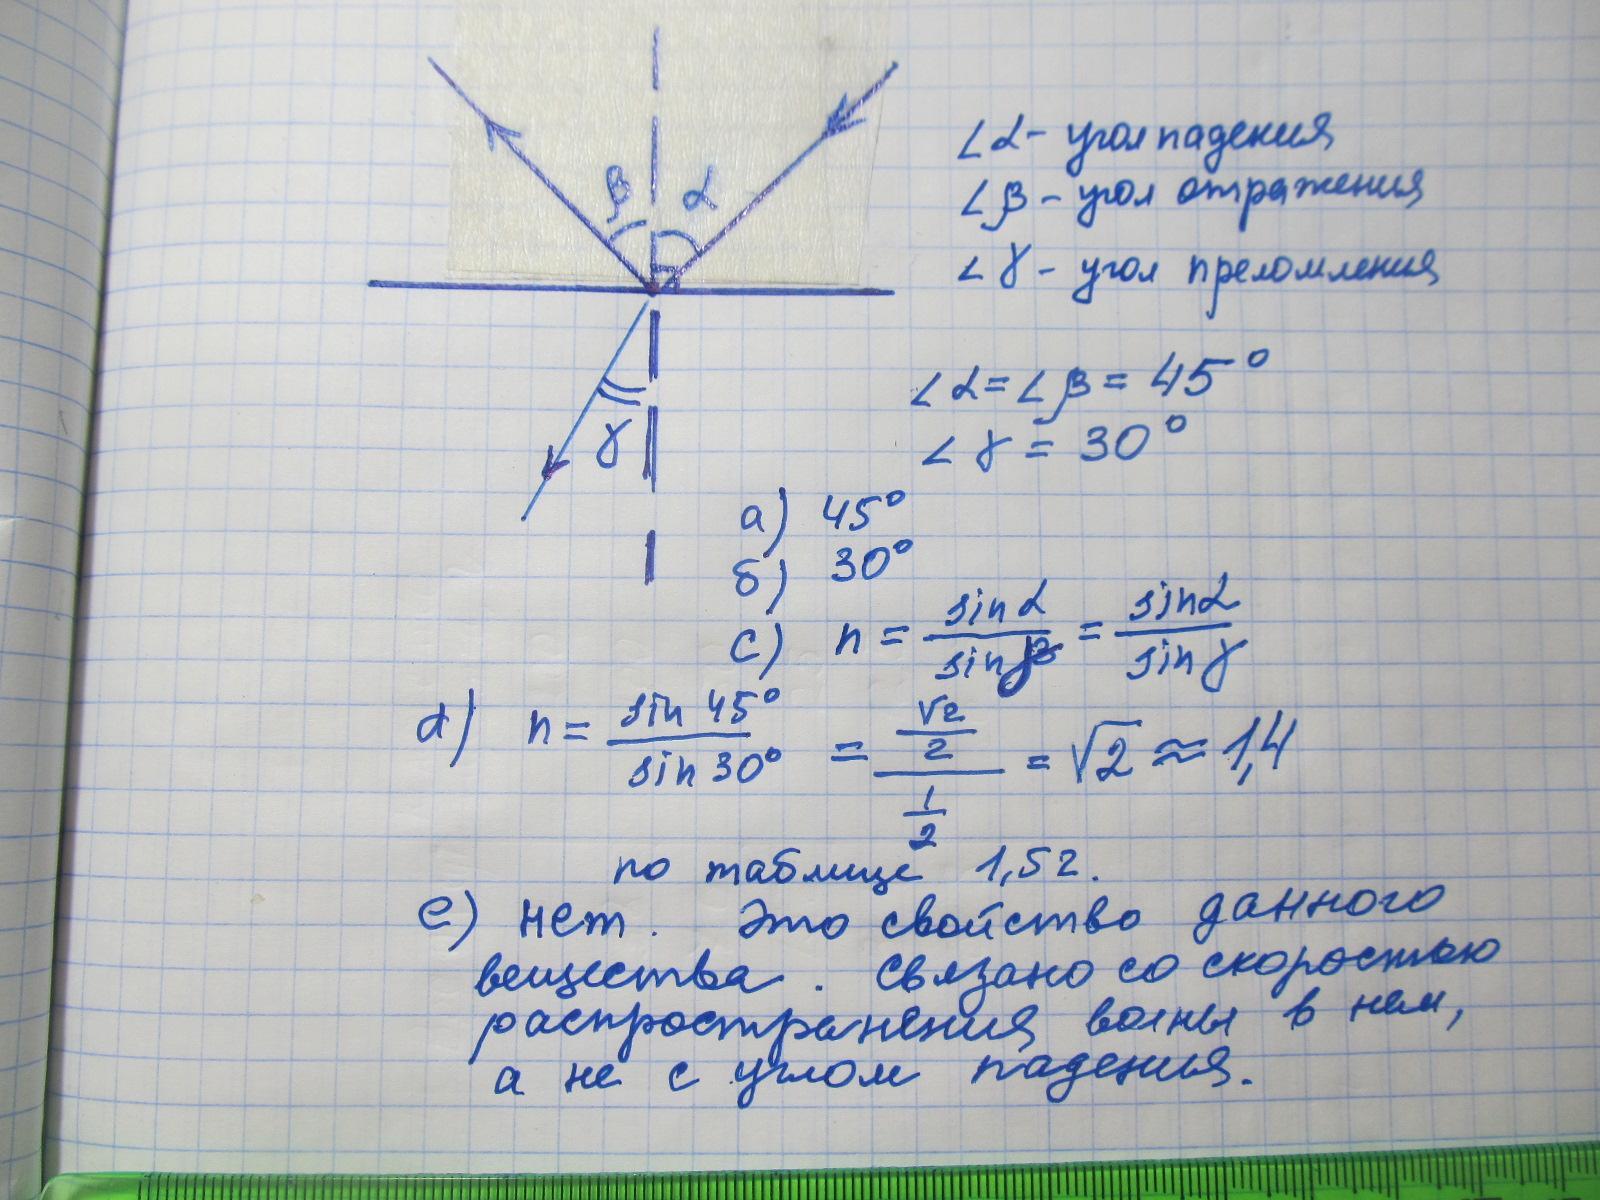 β α
∠α - угол падения
∠β - угол отражения
∠γ - угол преломления
γ
∠α = ∠β = 45°
∠γ = 30°
а) 45°
б) 30°
c) n = sinα / sinγ = sinα / sinγ
d) n = sin 45° / sin 30° = √2/2 / 1/2 = √2 ≈ 1,4
по таблице 1,52.
e) нет. Это свойство данного
вещества. Связано со скоростью
распространения волны в нем,
а не с углом падения.